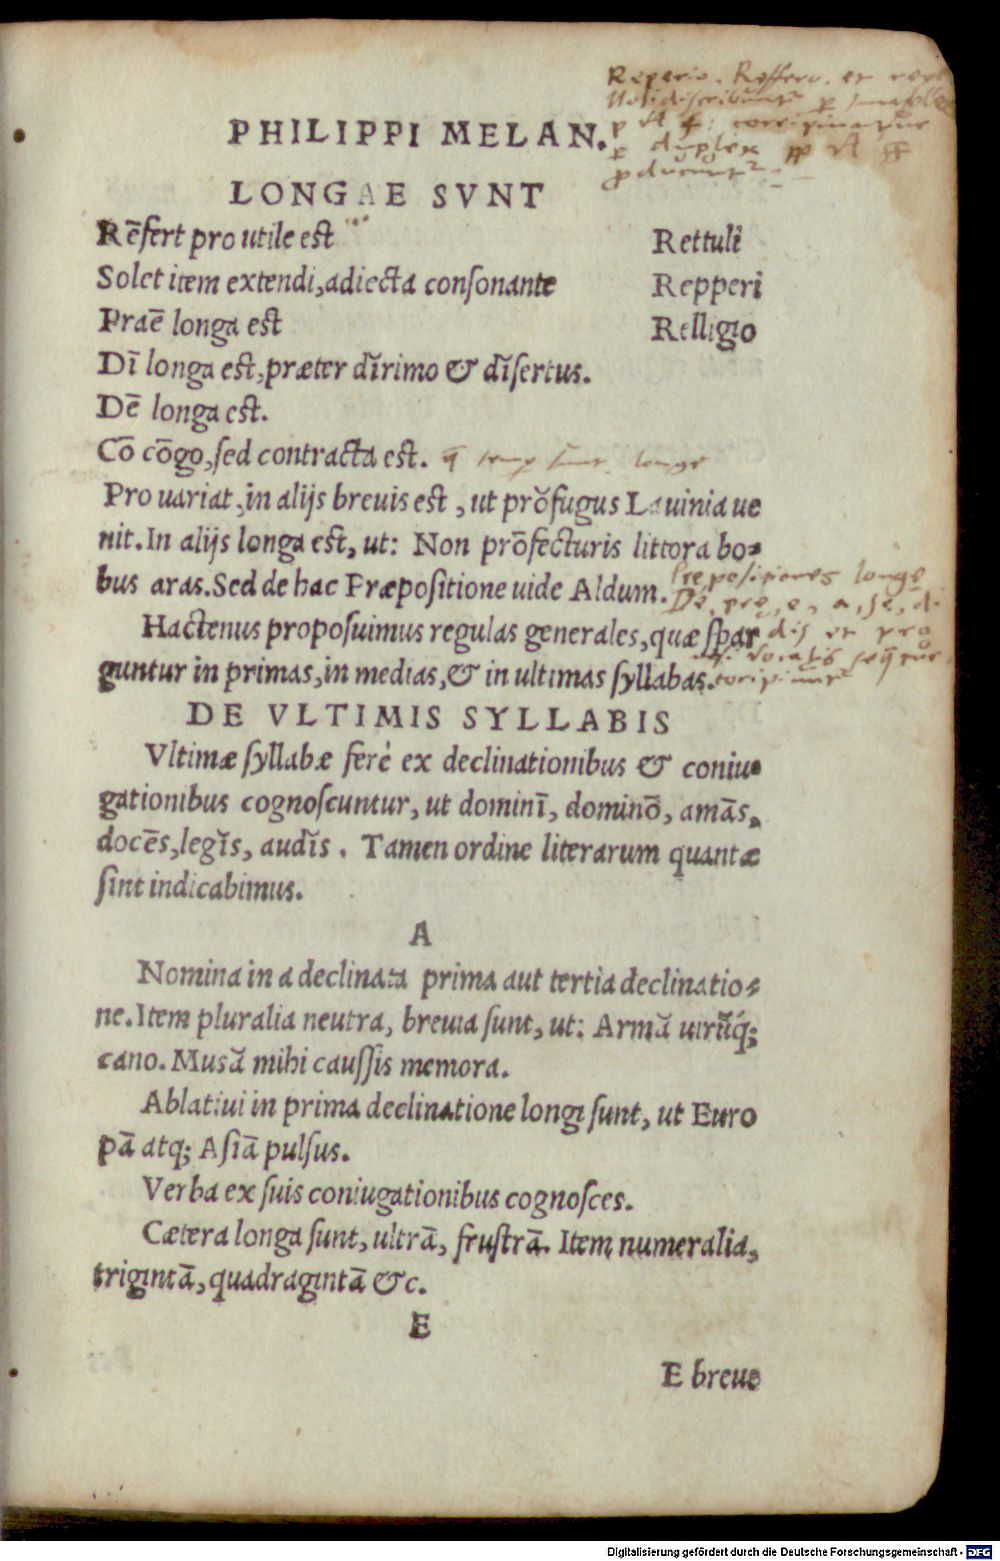 PHILIPPI MELAN.
LONGAE SVNT
Rēfert pro utile est Rettuli
Solet item extendi, adiecta consonante Repperi
Praē longa est Relligio
Dī longa est, præter dĭrimo & dĭsertus.
Dē longa est.
Cō cōgo, sed contracta est.
Pro uariat, in alijs breuis est, ut prŏfugus Lauinia ue
nit. In alijs longa est, ut: Non prōfecturis littora bo-
bus aras. Sed de hac Præpositione uide Aldum.
Hactenus proposuimus regulas generales, quæ spar
guntur in primas, in medias, & in ultimas syllabas.
DE VLTIMIS SYLLABIS
Vltimæ syllabæ ferè ex declinationibus & coniu-
gationibus cognoscuntur, ut dominī, dominō, amās,
docēs, legĭs, audīs. Tamen ordine literarum quantæ
sint indicabimus.
A
Nomina in a declinata prima aut tertia declinatio-
ne. Item pluralia neutra, breuia sunt, ut: Armă uirūq́;
cano. Musă mihi caussis memora.
Ablatiui in prima declinatione longi sunt, ut Euro
pā atq; Asiā pulsus.
Verba ex suis coniugationibus cognosces.
Cætera longa sunt, ultrā, frustrā. Item numeralia,
trigintā, quadragintā &c.
E
E breue
Reperio. Reffero. et
duplex
Prepositiones longe
De, pre, e, a, se, di
dis et pro
longe
Digitalisierung gefördert durch die Deutsche Forschungsgemeinschaft - DFG